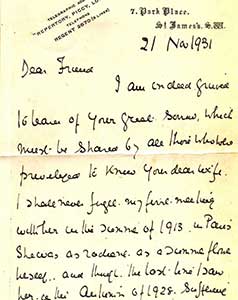 TELEGRAPHIC ADD
"REPERTORY, PICCY, LO
TELEPHONE
REGENT 5670 (2 LINES)
7. Park Place.
St James's. S.W.
21 Nov 1931
Dear Friend
I am indeed grieved
to learn of your great sorrow, which
must be shared by all those who were
priveleged to know your dear wife.
I shall never forget my first meeting
with her in the summer of 1913 in Paris
She was as radiant as a summer flower
herself.. and though the last time I saw
her in the Autumn of 1928. Suffering